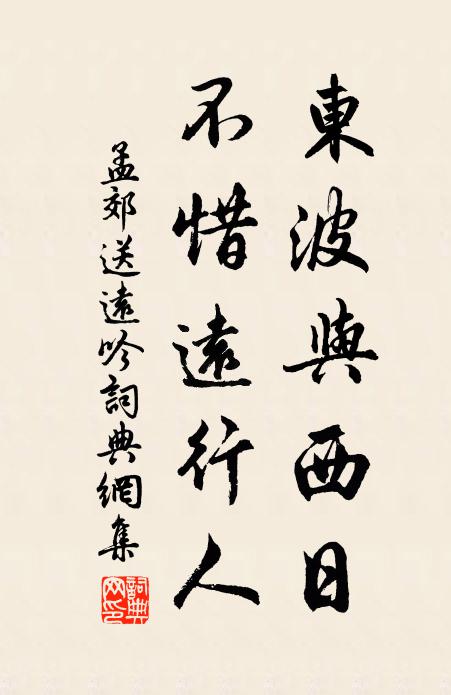 東波與西日
不惜遠行人
孟郊送遠吟詞典網集
詞典網印